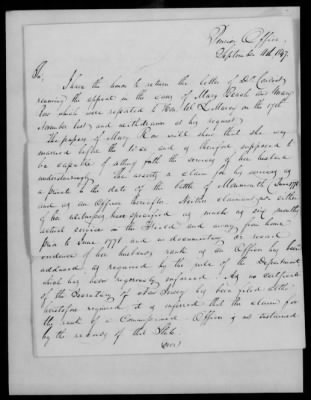 Pension Office,
September 11th, 1847.
Sir,
I have the honor to return the letter of
renewing the appeal in the cases of Mary Beach and Mary
Roe which were reported to Hon. W. L. Marcy on the 17th
November last and withdrawn at his request.
The papers of Mary Roe will show that she was
married before the war and is therefore supposed to
be capable of setting forth the services of her husband
understandingly. She asserts a claim for his services as
a private to the date of the battle of Monmouth, June 1778
and as an Officer thereafter. Neither claimant nor either
of her witnesses have specified as much as six months
actual service in the Field and away from home
prior to June 1778 and no documentary or record
evidence of her husband's rank as an Officer has been
adduced as required by the rule of the Department
which has been rigorously enforced. As no certificate
of the Secretary of New Jersey has been filed
heretofore required, it is inferred that the claim for
the rank of a Commissioned Officer is not sustained
by the records of that State.
(over)